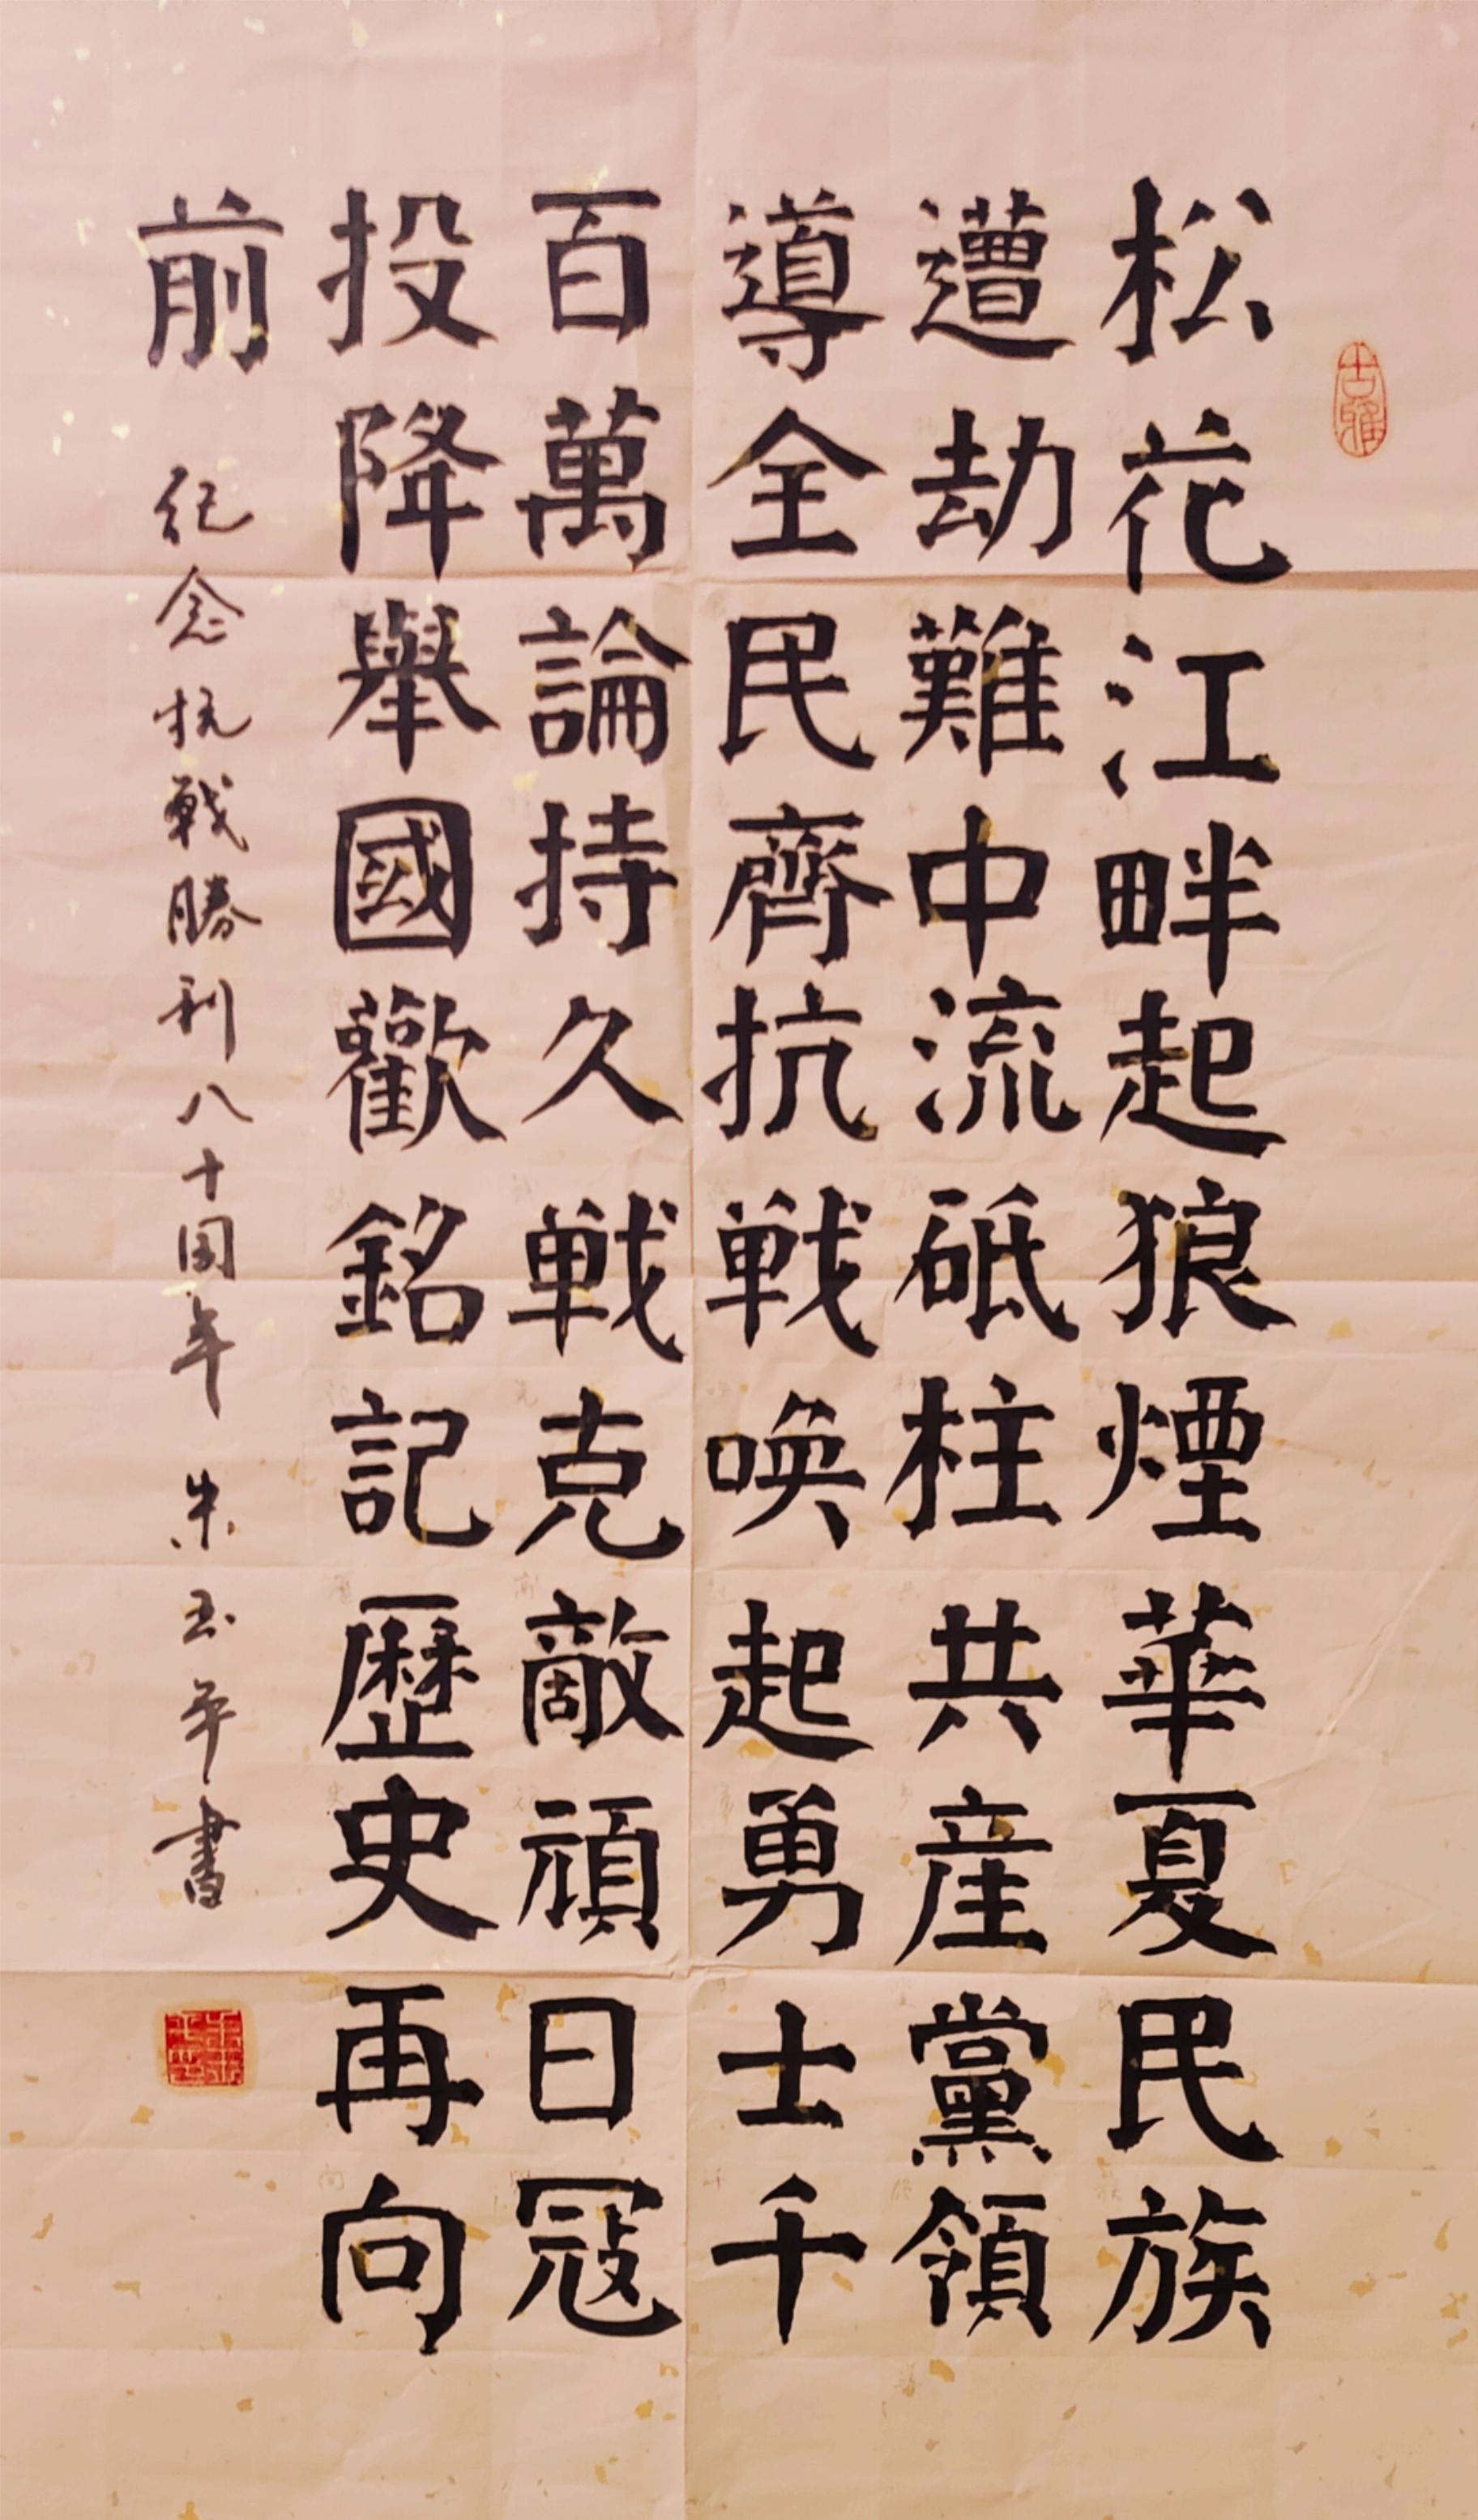 古雅
松花江畔起狼煙華夏民族
遭劫難中流砥柱共産黨領
導全民齊抗戦喚起勇士千
百萬論持久戦克敵頑日冦
投降舉國歡銘記歷史再向
前
纪念抗戰勝利八十周年 朱玉平書